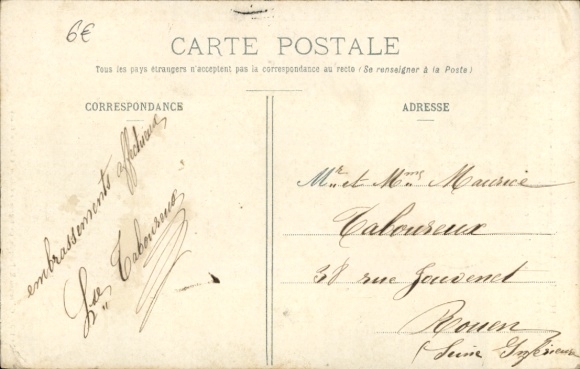 6€
CARTE POSTALE
Tous les pays étrangers n'acceptent pas la correspondance au recto (Se renseigner à la Poste)
CORRESPONDANCE
ADRESSE
embrassements affectueux
Taboureux
Mr et Mme Maurice
Taboureux
38 rue Jouvenet
Rouen
(Seine Inférieure